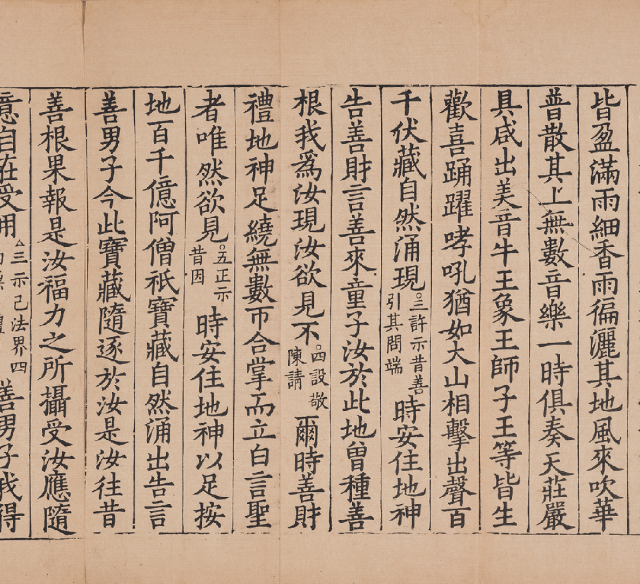 皆盈滿雨細香雨徧灑其地風來吹華
普散其上無數音樂一時俱奏天莊嚴
具咸出美音牛王象王師子王等皆生
歡喜踊躍哮吼猶如大山相擊出聲百
千伏藏自然涌現○三許示昔善引其問端時安住地神
告善財言善來童子汝於此地曾種善
根我爲汝現汝欲見不○四設敬陳請爾時善財
禮地神足繞無數帀合掌而立白言聖
者唯然欲見○五正示昔因時安住地神以足按
地百千億阿僧祇寶藏自然涌出告言
善男子今此寶藏隨逐於汝是汝往昔
善根果報是汝福力之所攝受汝應隨
意自在受用△三示己法界四善男子我得